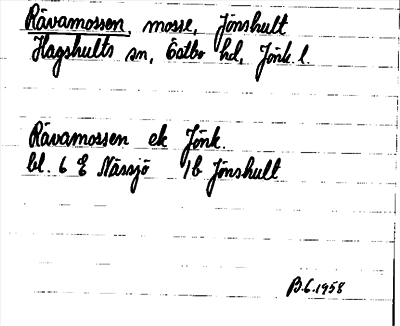 Rävamossen, mosse, Jönshult
Hagshults sn, Östbo hd, Jönk. l.
Rävamossen ek Jönk.
bl. 6 E Nässjö 1b Jönshult
B.G.1958